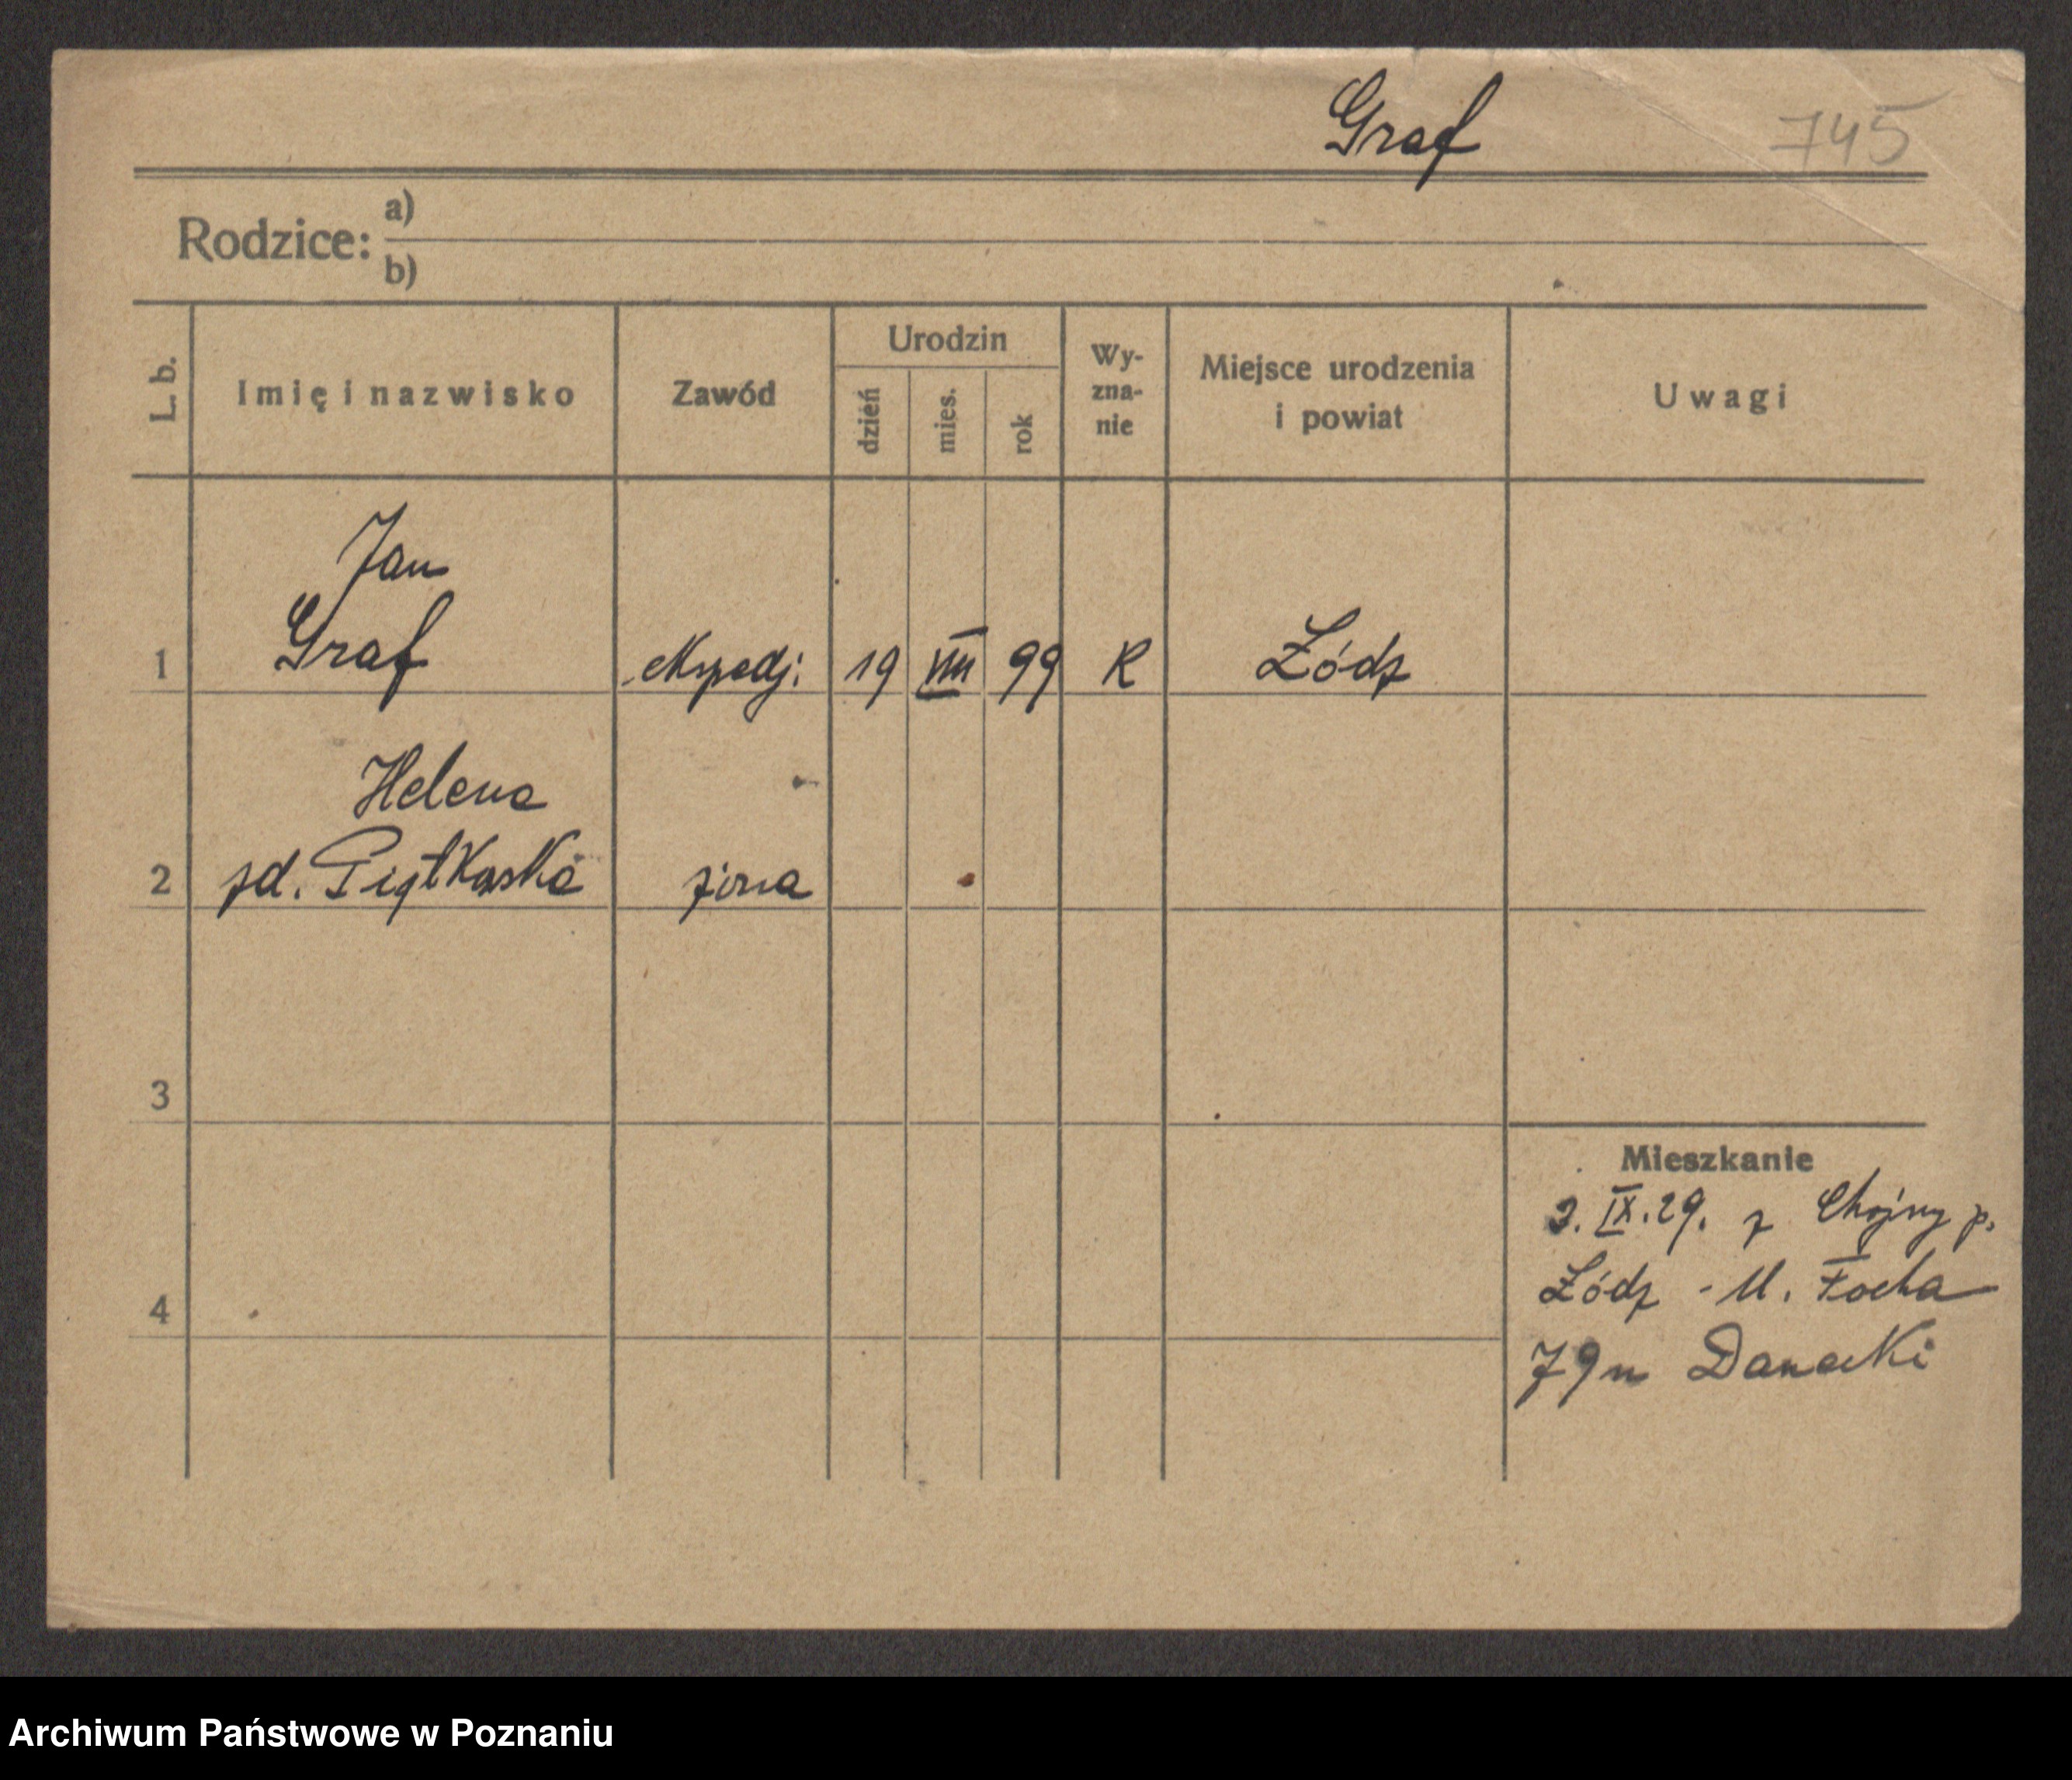 Graf 745
Rodzice: a)
b)
L. b. Imię i nazwisko Zawód Urodzin dzień mies. rok Wy-zna-nie Miejsce urodzenia i powiat Uwagi
Jan
1 Graf ekspedj. 19 VIII 99 R Łódz
Helena
2 zd. Piątkowska żona
3
Mieszkanie
3. IX. 29. z Chojny p.
Łódz - M. Focha
4
79 m
Archiwum Państwowe w Poznaniu